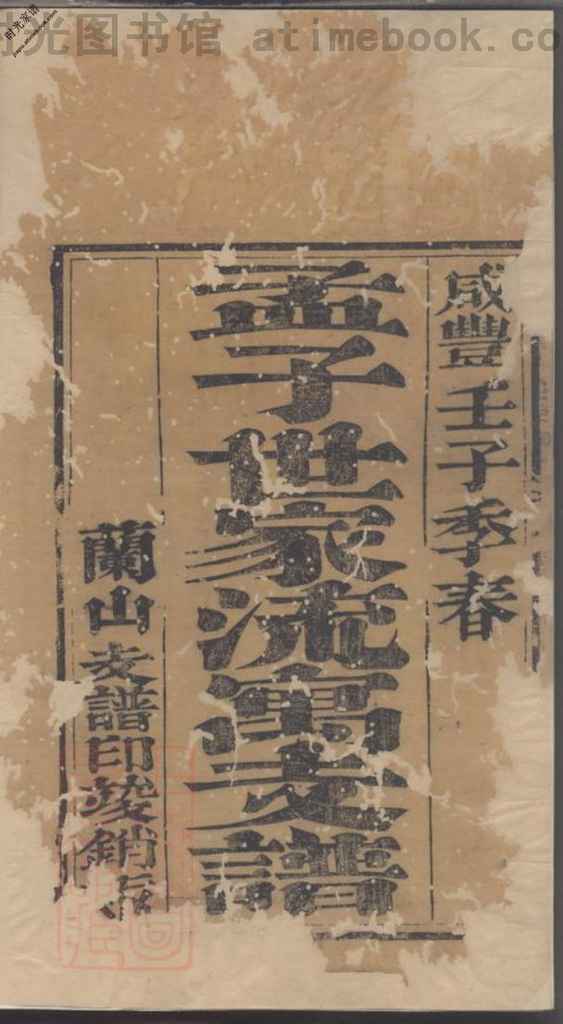 时光图书馆 atimebook.co
时光家谱
咸豐壬子季春
孟子世家流寓支譜
蘭山支譜印竣銷